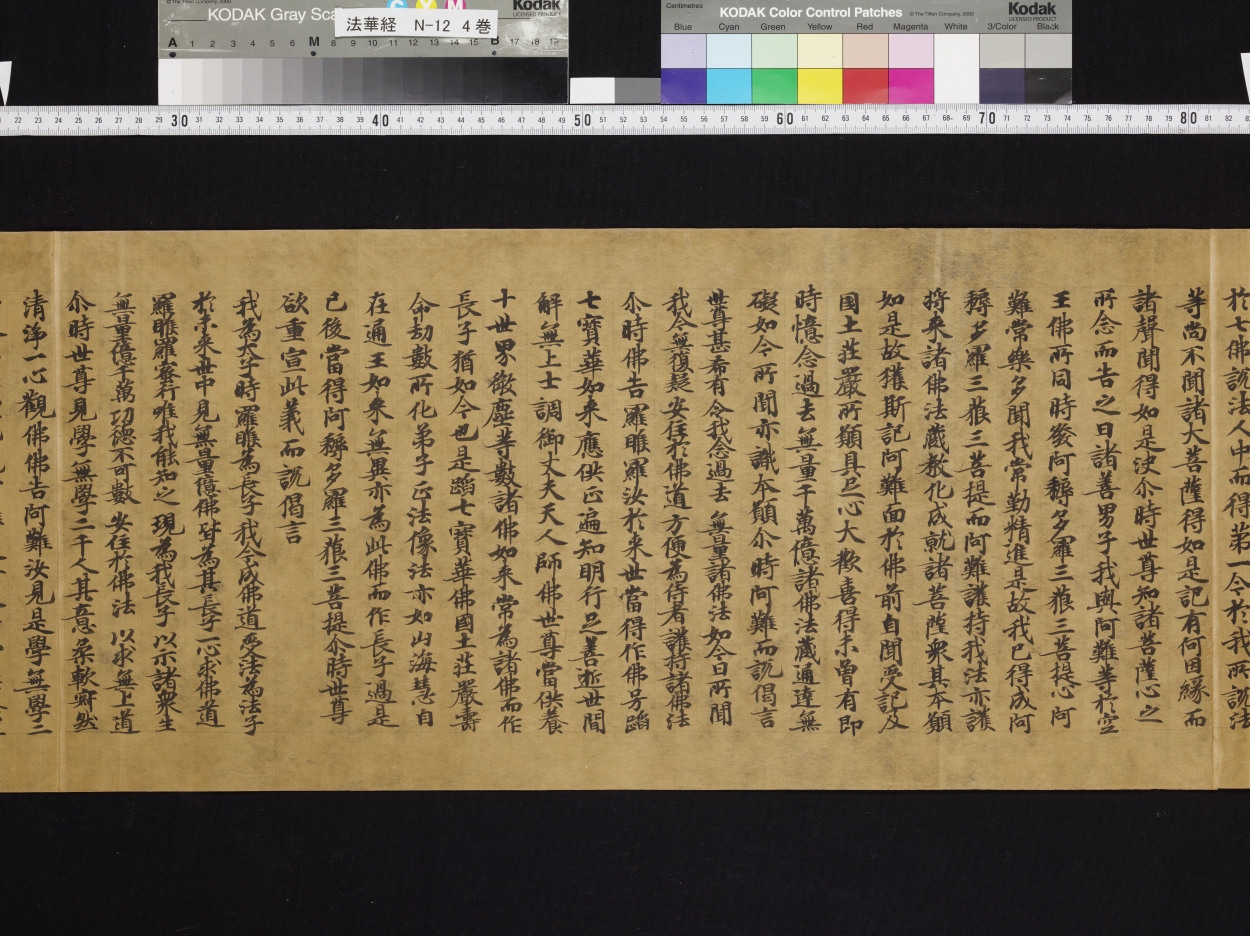 © The Tiffen Company, 2000
KODAK Gray Sca
C Y M
Kodak
LICENSED PRODUCT
法華経 N-12 4巻
A 1 2 3 4 5 6 M 8 9 10 11 12 13 14 15 B 17 18 19
Centimetres
KODAK Color Control Patches
© The Tiffen Company, 2000
Kodak
LICENSED PRODUCT
Blue Cyan Green Yellow Red Magenta White 3/Color Black
22 23 24 25 26 27 28 29 30 31 32 33 34 35 36 37 38 39 40 41 42 43 44 45 46 47 48 49 50 51 52 53 54 55 56 57 58 59 60 61 62 63 64 65 66 67 68 69 70 71 72 73 74 75 76 77 78 79 80 81 82
於七佛說法人中而得第一今於我所說法
等尚不聞諸大菩薩得如是記有何因緣而
諸聲聞得如是決尒時世尊知諸菩薩心之
所念而告之曰諸善男子我與阿難等於空
王佛所同時發阿耨多羅三藐三菩提心阿
難常樂多聞我常勤精進是故我已得成阿
耨多羅三藐三菩提而阿難護持我法亦護
將来諸佛法藏教化成就諸菩薩衆其本願
如是故獲斯記阿難面於佛前自聞受記及
國土莊嚴所願具足心大歡喜得未曾有即
時憶念過去無量千萬億諸佛法藏通達無
礙如今所聞亦識本願尒時阿難而說偈言
世尊甚希有 令我念過去 無量諸佛法 如今日所聞
我今無復疑 安住於佛道 方便為侍者 護持諸佛法
尒時佛告羅睺羅汝於来世當得作佛号蹈
七寶華如来應供正遍知明行足善逝世間
解無上士調御丈夫天人師佛世尊當供養
十世界微塵等數諸佛如来常為諸佛而作
長子猶如今也是蹈七寶華佛國土莊嚴壽
命劫數所化弟子正法像法亦如山海慧自
在通王如来無異亦為此佛而作長子過是
已後當得阿耨多羅三藐三菩提尒時世尊
欲重宣此義而說偈言
我為太子時 羅睺為長子 我今成佛道 受法為法子
於未来世中 見無量億佛 皆為其長子 一心求佛道
羅睺羅密行 唯我能知之 現為我長子 以示諸衆生
無量億千萬 功德不可數 安住於佛法 以求無上道
尒時世尊見學無學二千人其意柔軟寂然
清淨一心觀佛佛告阿難汝見是學無學二